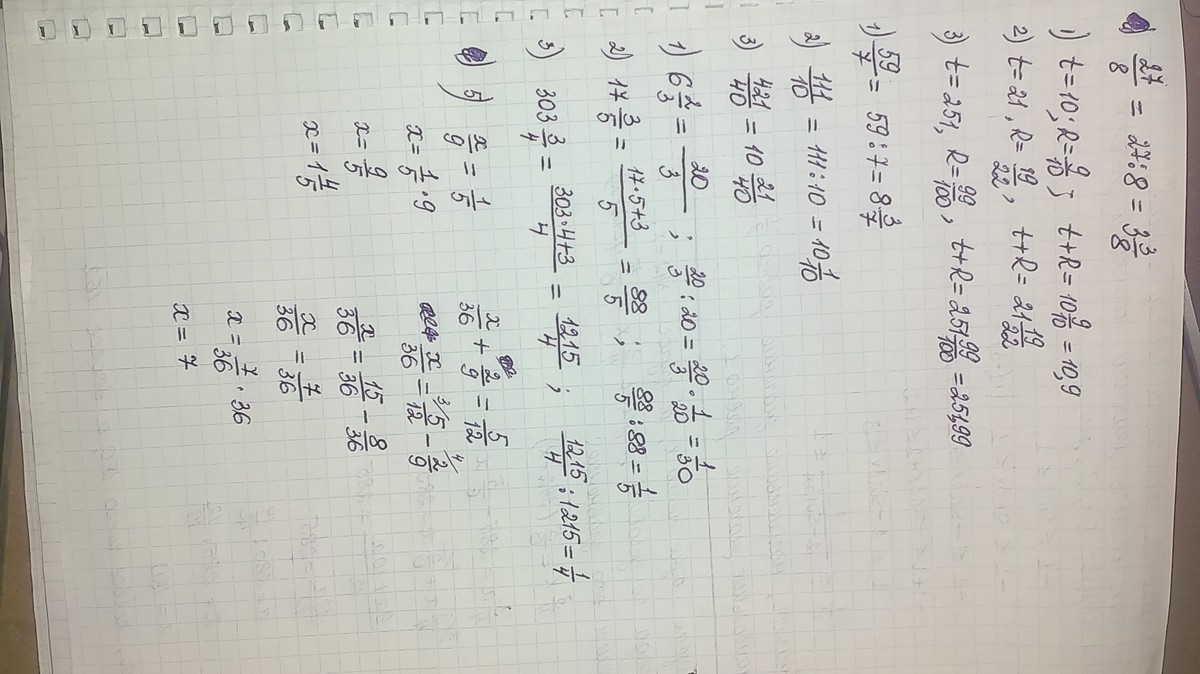 27/8 = 27:8 = 3 3/8
1) t=10; k=9/10; t+k=10 9/10=10,9
2) t=21, k=19/22, t+k=21 19/22
3) t=251, k=99/100, t+k=251 99/100=251,99
1) 59/7 = 59:7=8 3/7
2) 111/10 = 111:10=10 1/10
3) 421/40 = 10 21/40
1) 6 2/3 = 20/3 ; 20/3 : 20 = 20/3 · 1/20 = 1/30
2) 17 3/5 = 17·5+3/5 = 88/5 ; 88/5 : 88 = 1/5
3) 303 3/4 = 303·4+3/4 = 1215/4 ; 1215/4 : 1215 = 1/4
5) x/9 = 1/5
x = 1/5 · 9
x = 9/5
x = 1 4/5
x/36 + 2/9 = 5/12
x/36 = 3/ 5/12 - 4/ 2/9
x/36 = 15/36 - 8/36
x/36 = 7/36
x = 7/36 · 36
x = 7